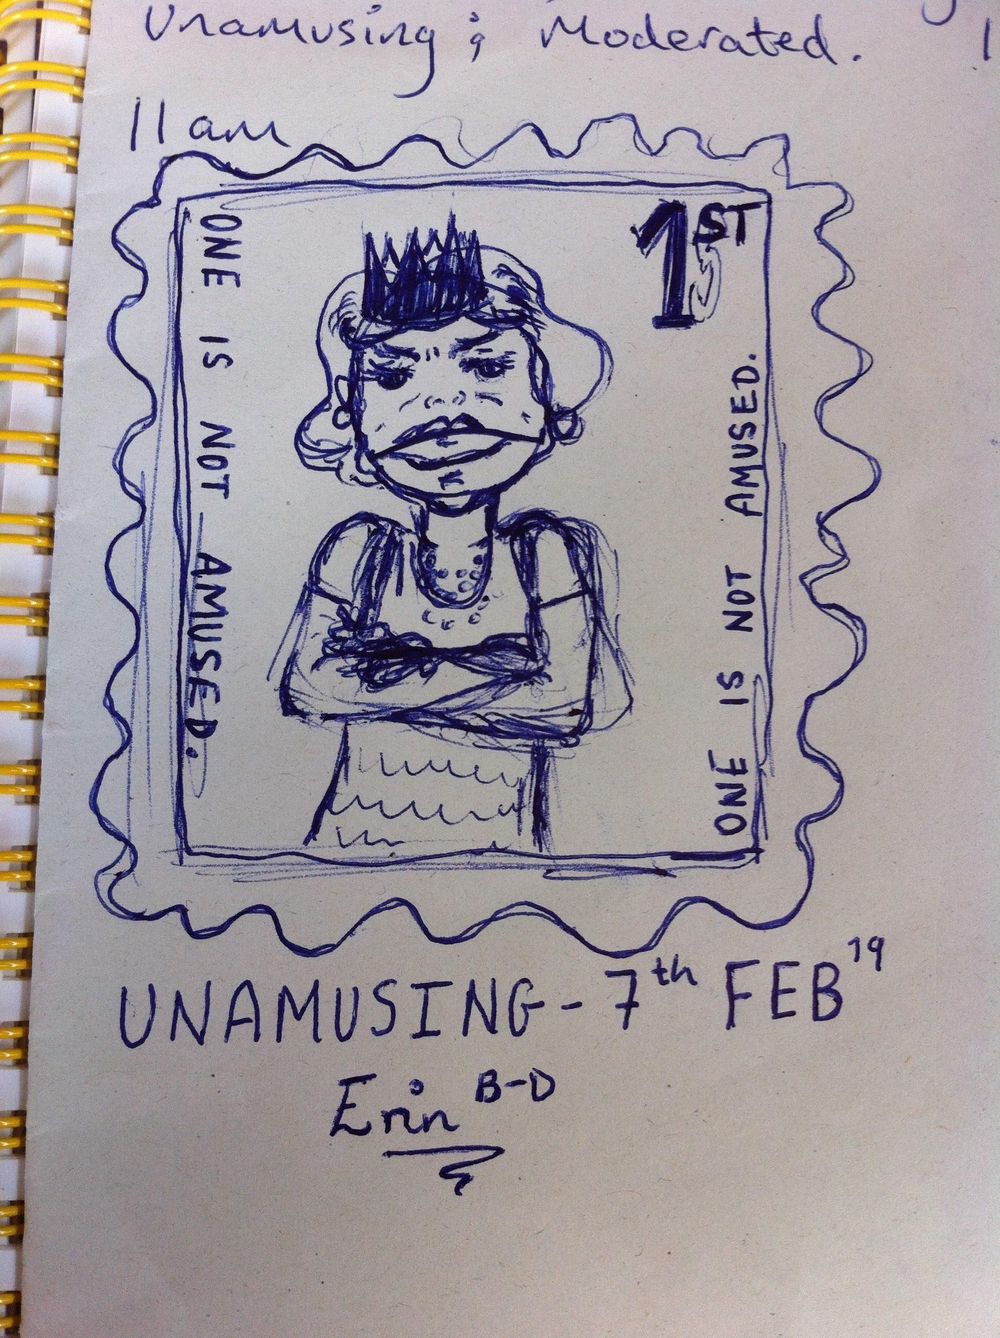 Unamusing ; Moderated.
11am
1ST
ONE IS NOT AMUSED.
ONE IS NOT AMUSED.
UNAMUSING - 7th FEB 19
Erin B-D